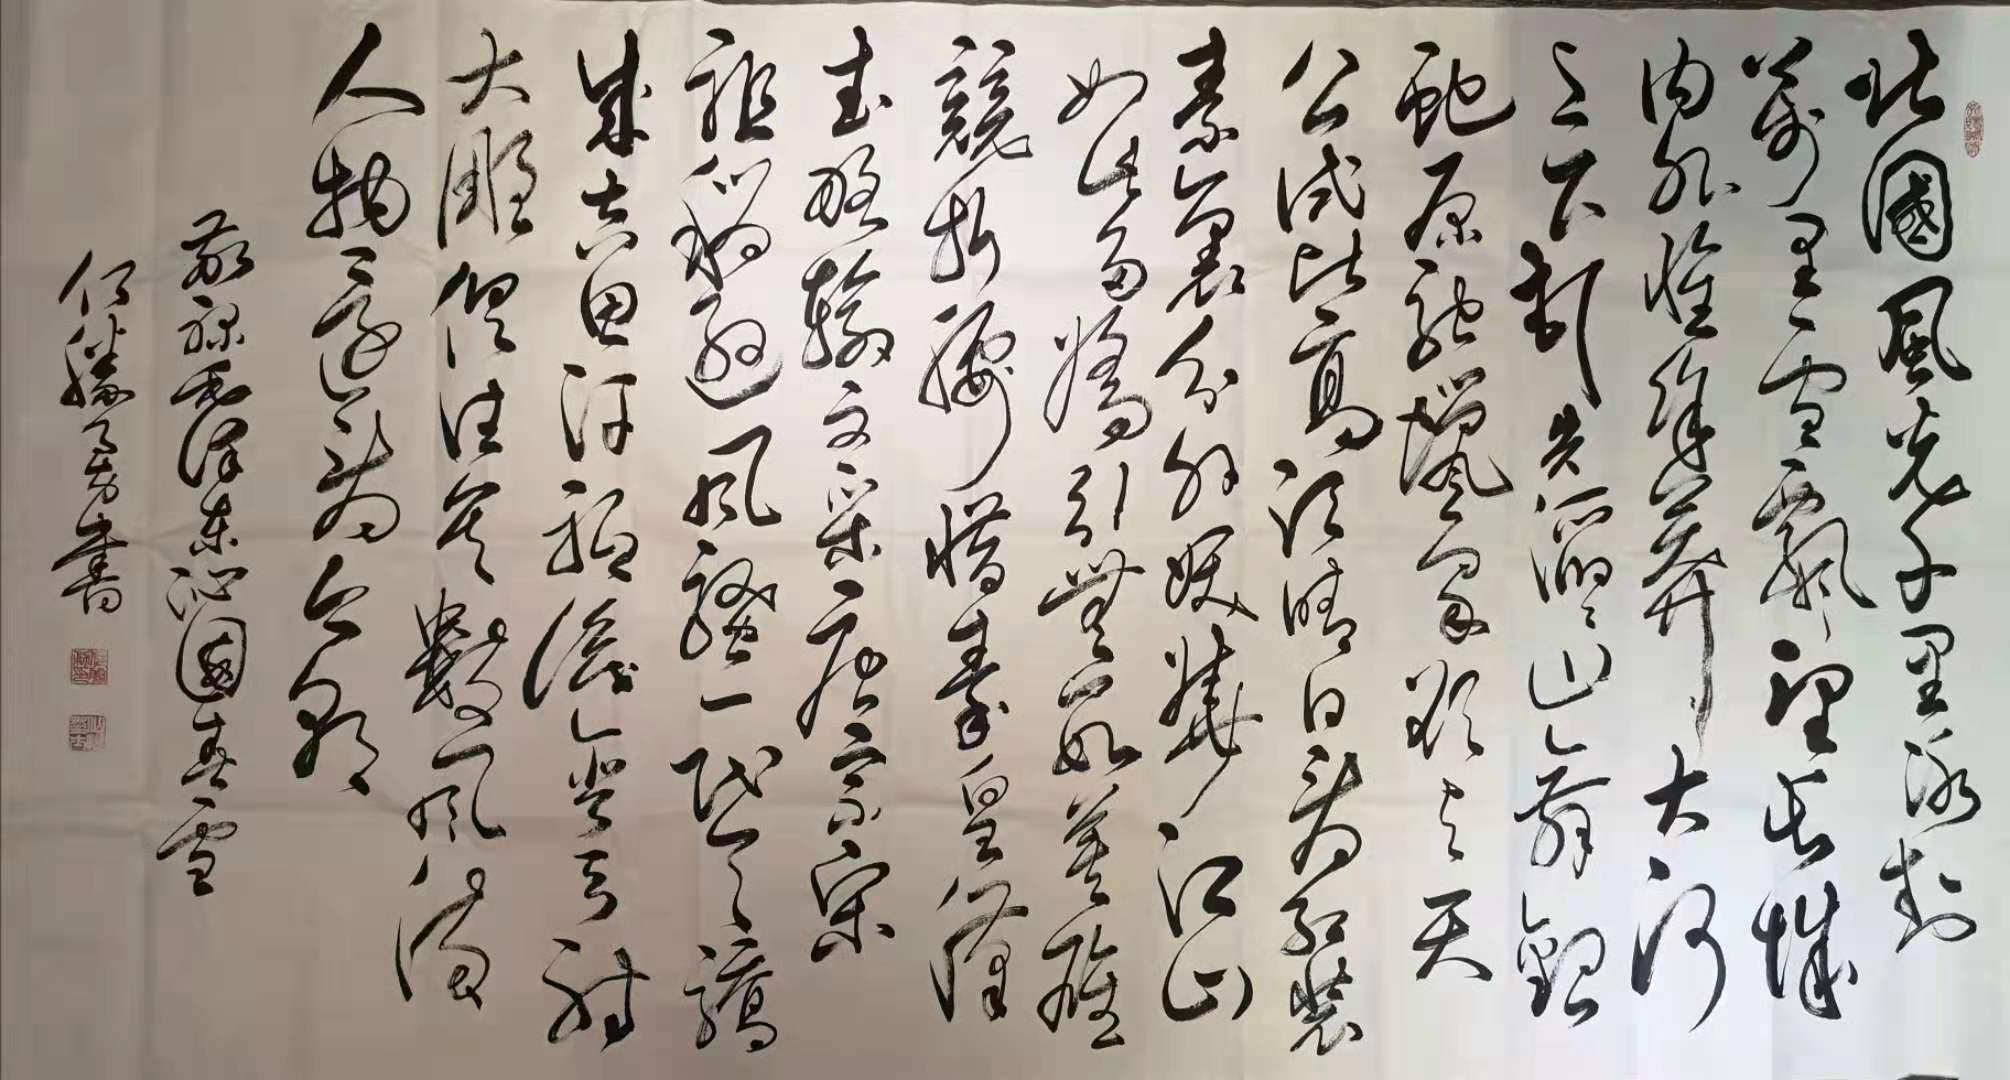 北國風光千里冰封
萬里雪飄望長城
内外惟餘莽莽大河
上下頓失滔滔山舞銀
蛇原馳蠟象欲與天
公試比高須晴日看紅裝
素裹分外妖嬈江山
如此多嬌引無數英雄
競折腰惜秦皇漢
武略輸文采唐宗宋
祖稍遜風騷一代天驕
成吉思汗祇識彎弓射
大雕俱往矣數風流
人物還看今朝
敬録毛澤東沁園春雪
何勝勇書